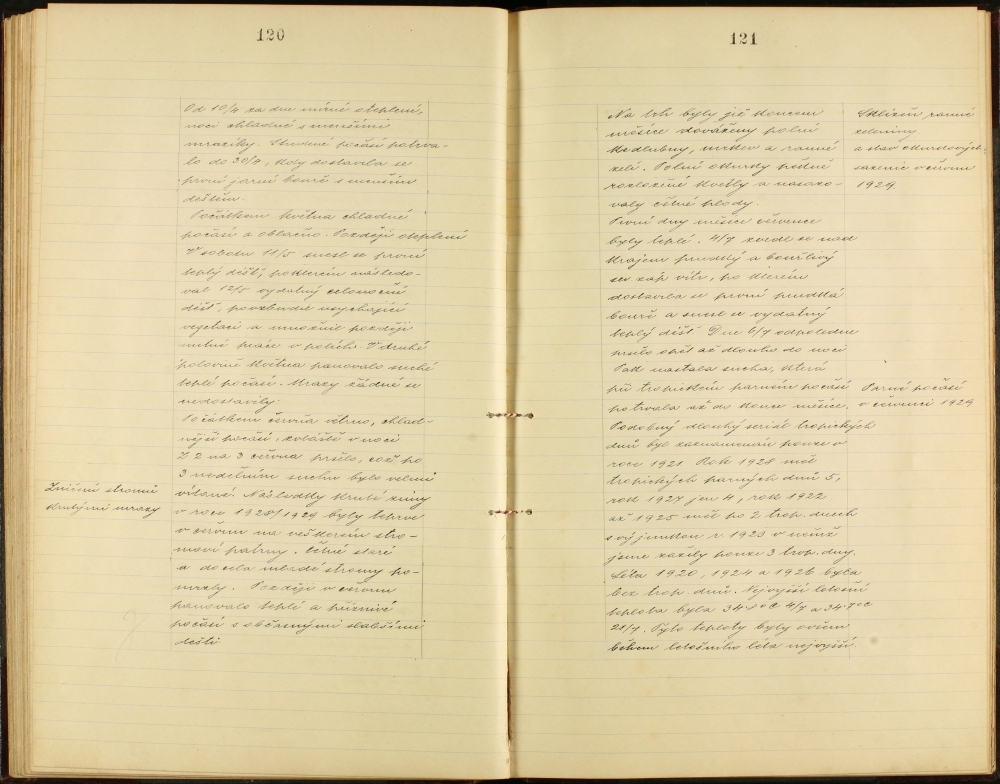 120
Od 10/4 za dne mírné oteplení,
noci chladné s menšími
mrazíky. Studené počasí potrva-
lo do 30/4, kdy dostavila se
první jarní bouře s menším
deštěm.
Počátkem května chladné
počasí a oblačno. Později oteplení
V sobotu 11/5 snesl se první
teplý déšť, po kterém násled-
val 12/5 vydatný celonoční
déšť, povzbudiv
vegetaci a umožniv později
nutné práce v polích. V druhé
polovině května panovalo suché
teplé počasí. Mrazy žádné se
nedostavily.
Počátkem června větrno, chlad-
nější počasí, zvláště v noci
Z 2 na 3 června pršelo, což po
3 nedělním suchu bylo velmi
vítané. Následky kruté zimy
v roce 1928/1929 byly teprve
v červnu na veškerém stro-
moví patrny. Četné staré
a docela mladé stromy po-
mrzly. Později v červnu
panovalo teplé a příznivé
počasí s občasnými slabšími
dešti
Zničení stromů
krutými mrazy
121
Na trh byly již koncem
měsíce dováženy polní
kedlubny, mrkev a ranné
zelí. Polní okurky pěkně
rozložené květly a nasazo-
valy četné plody.
První dny měsíce července
byly teplé. 4/7 zvedl se nad
krajem prudký a bouřlivý
sev. záp. vítr, po kterém
dostavila se první prudká
bouře a snesl se vydatný
teplý déšť Dne 6/7 odpoledne
pršelo opět až dlouho do noci
Pak nastala sucha, která
při tropickém parném počasí
potrvala až do konce měsíce.
Podobný dlouhý seriál tropických
dnů byl zaznamenán pouze v
roce 1921 Rok 1928 měl
tropických parných dnů 5,
rok 1927 jen 4, rok 1922
až 1925 měl po 2 trop. dnech
s výjimkou r. 1923 v němž
jsme zažily pouze 3 trop. dny.
Léta 1920, 1924 a 1926 byla
bez trop. dnů. Nejvyšší letošní
teplota byla 4/7 a
Tyto teploty byly ovšem
během letošního léta nejvyšší.
Sklizeň ranné
zeleniny
a stav okurkových
sazenic v červnu
1929.
Parné počasí
v červenci 1929